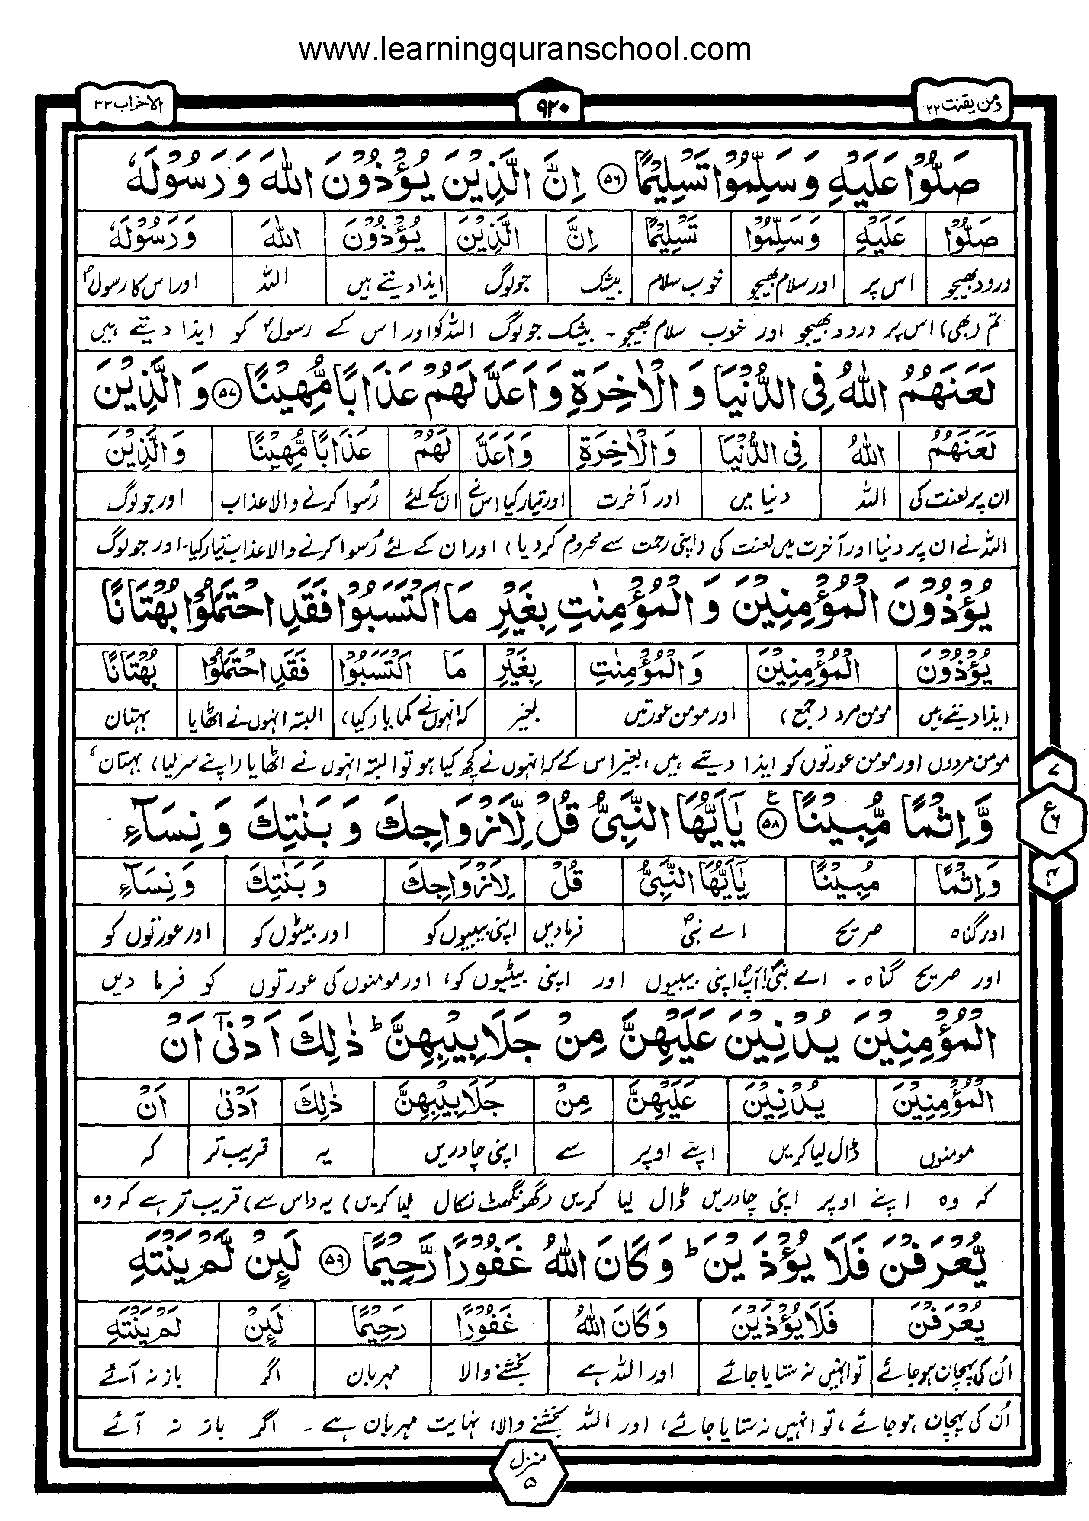 www.learningquranschool.com
ومن یقنت ۲۲
۹۲۰
الاحزاب ۳۳
صَلُّوْا عَلَیْهِ وَ سَلِّمُوْا تَسْلِیْمًا ۝۵۶ اِنَّ الَّذِیْنَ یُؤْذُوْنَ اللّٰهَ وَ رَسُوْلَهٗ
صَلُّوْا عَلَیْهِ وَ سَلِّمُوْا تَسْلِیْمًا اِنَّ الَّذِیْنَ یُؤْذُوْنَ اللّٰهَ وَ رَسُوْلَهٗ
درود بھیجو اس پر اور سلام بھیجو خوب سلام بیشک جو لوگ ایذا دیتے ہیں اللہ اور اس کا رسولؐ
تم (بھی) اس پر درود بھیجو اور خوب سلام بھیجو ۔ بیشک جو لوگ اللہ کو اور اس کے رسولؐ کو ایذا دیتے ہیں
لَعَنَهُمُ اللّٰهُ فِی الدُّنْیَا وَ الْاٰخِرَةِ وَ اَعَدَّ لَهُمْ عَذَابًا مُّهِیْنًا ۝۵۷ وَ الَّذِیْنَ
لَعَنَهُمُ اللّٰهُ فِی الدُّنْیَا وَ الْاٰخِرَةِ وَ اَعَدَّ لَهُمْ عَذَابًا مُّهِیْنًا وَ الَّذِیْنَ
ان پر لعنت کی اللہ دنیا میں اور آخرت اور تیار کیا اس نے ان کے لئے رسوا کرنے والا عذاب اور جو لوگ
اللہ نے ان پر دنیا اور آخرت میں لعنت کی (اپنی رحمت سے محروم کر دیا) اور ان کے لئے رُسوا کرنے والا عذاب تیار کیا۔ اور جو لوگ
یُؤْذُوْنَ الْمُؤْمِنِیْنَ وَ الْمُؤْمِنٰتِ بِغَیْرِ مَا اكْتَسَبُوْا فَقَدِ احْتَمَلُوْا بُهْتَانًا
یُؤْذُوْنَ الْمُؤْمِنِیْنَ وَ الْمُؤْمِنٰتِ بِغَیْرِ مَا اكْتَسَبُوْا فَقَدِ احْتَمَلُوْا بُهْتَانًا
ایذا دیتے ہیں مومن مرد (جمع) اور مومن عورتیں بغیر کہ انہوں نے کمایا (کیا) البتہ انہوں نے اٹھایا بہتان
مومن مردوں اور مومن عورتوں کو ایذا دیتے ہیں بغیر اس کے کہ انہوں نے کچھ کیا ہو تو البتہ انہوں نے اٹھایا (اپنے سر لیا) بہتان
وَّ اِثْمًا مُّبِیْنًا ۝۵۸ یٰۤاَیُّهَا النَّبِیُّ قُلْ لِّاَزْوَاجِكَ وَ بَنٰتِكَ وَ نِسَآءِ
وَ اِثْمًا مُبِیْنًا یٰۤاَیُّهَا النَّبِیُّ قُلْ لِاَزْوَاجِكَ وَ بَنٰتِكَ وَ نِسَآءِ
اور گناہ صریح اے نبیؐ فرما دیں اپنی بیبیوں کو اور بیٹیوں کو اور عورتوں کو
اور صریح گناہ ۔ اے نبیؐ! آپؐ اپنی بیبیوں اور اپنی بیٹیوں کو، اور مومنوں کی عورتوں کو فرما دیں
الْمُؤْمِنِیْنَ یُدْنِیْنَ عَلَیْهِنَّ مِنْ جَلَابِیْبِهِنَّ ؕ ذٰلِكَ اَدْنٰۤی اَنْ
الْمُؤْمِنِیْنَ یُدْنِیْنَ عَلَیْهِنَّ مِنْ جَلَابِیْبِهِنَّ ذٰلِكَ اَدْنٰی اَنْ
مومنوں ڈال لیا کریں اپنے اوپر سے اپنی چادریں یہ قریب تر کہ
کہ وہ اپنے اوپر اپنی چادریں ڈال لیا کریں (گھونگھٹ نکال لیا کریں) یہ (اس سے) قریب تر ہے کہ وہ
یُّعْرَفْنَ فَلَا یُؤْذَیْنَ ؕ وَ كَانَ اللّٰهُ غَفُوْرًا رَّحِیْمًا ۝۵۹ لَىِٕنْ لَّمْ یَنْتَهِ
یُعْرَفْنَ فَلَا یُؤْذَیْنَ وَ كَانَ اللّٰهُ غَفُوْرًا رَحِیْمًا لَىِٕنْ لَمْ یَنْتَهِ
اُن کی پہچان ہو جائے تو انہیں نہ ستایا جائے اور اللہ ہے بخشنے والا مہربان اگر باز نہ آئے
اُن کی پہچان ہو جائے، تو انہیں نہ ستایا جائے، اور اللہ بخشنے والا، نہایت مہربان ہے ۔ اگر باز نہ آئے
ع
منزل ۵